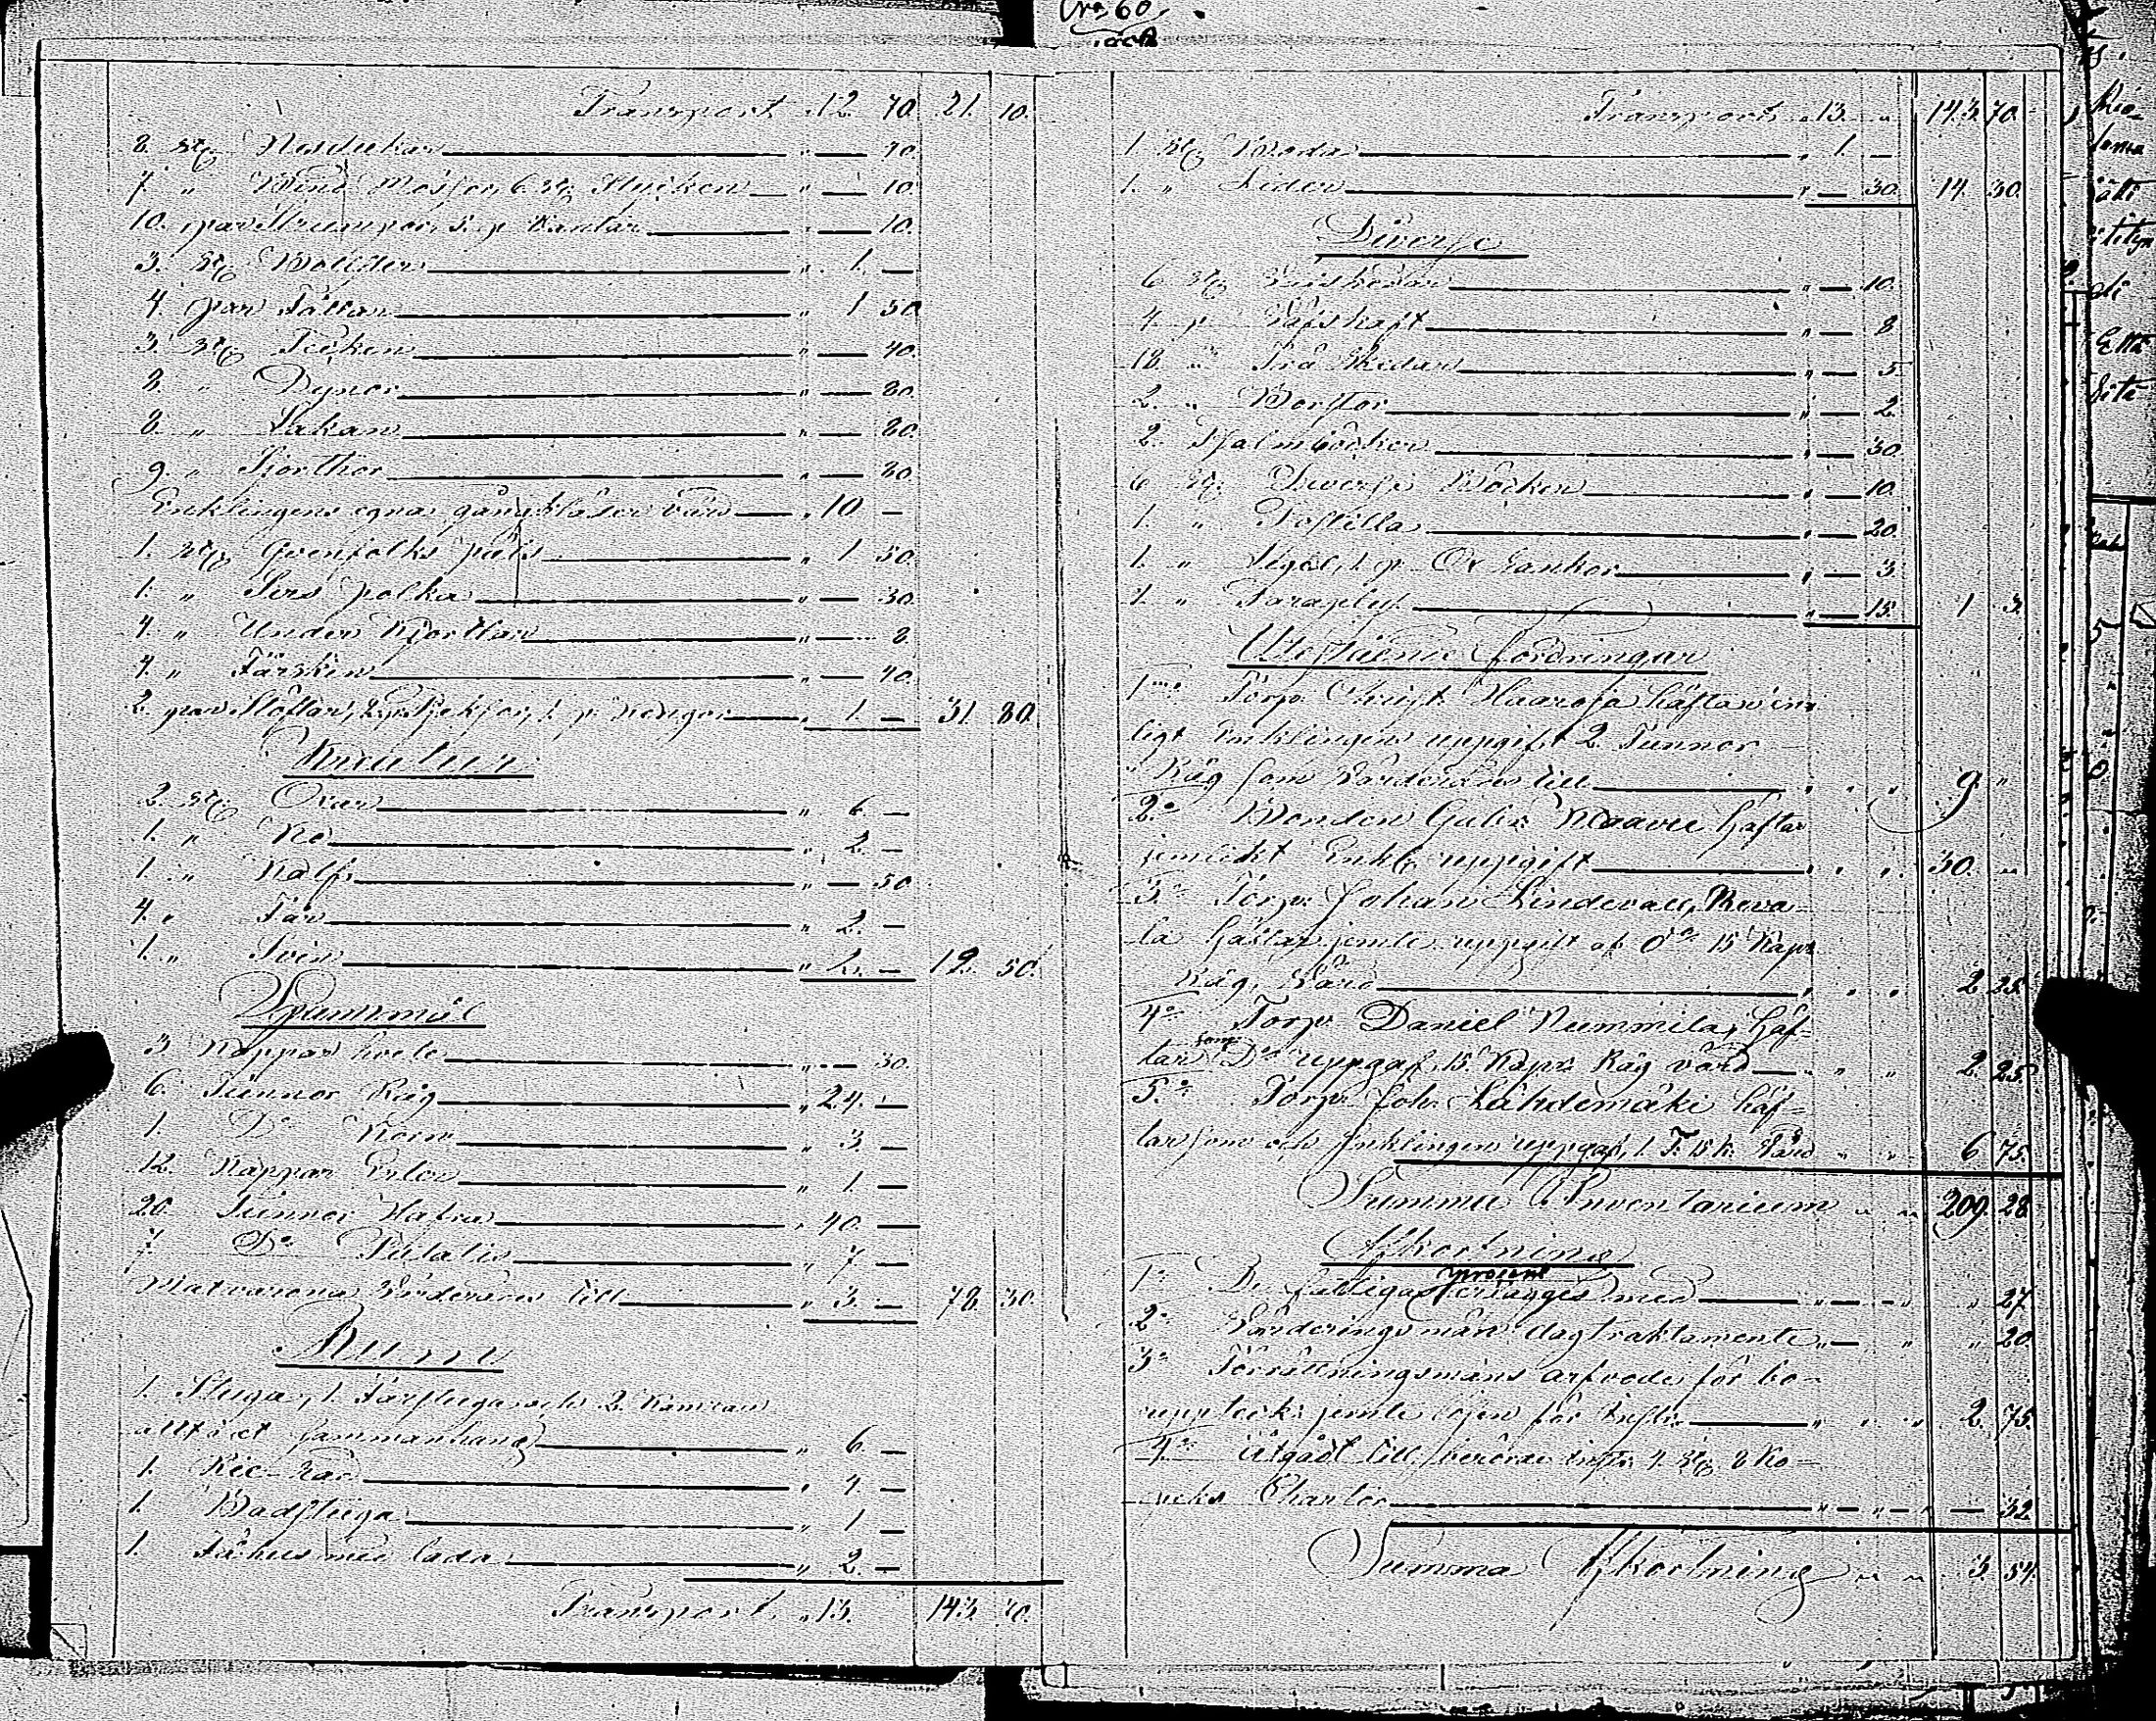 No 60
Transport " 12. 70. 21. 10.
8. stÿ Nesdukar " — 70
7. " Bind Mössor, 6 stÿ Stycken " — 10
10. par Strumpor, 5. p. Vantar " — 10.
3. stÿ " 1. —
4. par Fållar " 1 50
3. stÿ Täcken " — 40.
8. " Dynor " — 80.
8. " Lakan " — 80.
9. " Skjorthor " — 80
Enklingens egna gångkläder värd " 10 —
1. stÿ Qvenfolks päls " 1 50.
1. " Sirs polka " — 30.
4. " Under Kjortlar " — 8.
4. " Fårskin " — 40.
2. par Stöflar, 2 p. 1. p. " 1. — 31 80.
Kreatur
2. stÿ Oxar " 6. —
1. " Ko " 2. —
1. " Kalf " — 50
4. " Får " 2. —
1. " Svin " — 12. 50.
Spanmål
3 Kappar hvete " — 30.
6. Tunnor Råg " 24. —
1. Do Korn " 3. —
12. Kappar Erter " 1. —
20 Tunnor Hafra " 40. —
7. Do Potatis " 7. —
Matvarona värderades till " 3. — 78. 30.
Rum
1. Stuga, 1. Farstuga och 2. Kamrar
allt i et sammanhang " 6. —
1. Rie " 4. —
1. Badstuga " 1 —
1. Fähus med lada " 2. —
Transport " 13. 143 70.
Transport " 13. " 143 70
1 stÿ Boda " 1. —
1. " Lider " — 30. 14. 30.
Diverse
6 stÿ " — 10.
4. p. Väfskaft " — 8
18. " Trä Skedar " — 5
2. " Borstor " — 2.
2. Psalmböcker " — 30
6 stÿ Diverse Böcker " — 10.
1. " Postilla " — 20.
1. " 1. p. Ox " — 3.
1. " Paraply " — 15 1 3.
Utestående fordringar
1mo Torp. Christ. Haaroja häftar en-
ligt Enklingens uppgift 2 Tunnor
Råg som värderades till " " " 9 "
2o Bonden Gabr. Waavu häftar
jemlikt Enkl. uppgift " " " 30. "
3o Torp. Johan Lindevall, Reva
la häftar jemte uppgift af Do 15 Kapr
Råg, Värd " " " 2 25
4o Torp. Daniel Nummila, häf=
tar som Do uppgaf, 15. Kapr. Råg värd " " 2 25
5o Torp. Joh. Lähdemäki häf=
tar som och Enklingen uppgaf, 1. T. 15 k. värd " " 6 75.
Summa Inventarium " " 209 28
Afkortning
1o De fattigas procent erlägges med " — " " 27
2o Värderingsmäns dagtraktamente " — " " 20
3o Förrättningsmäns arfvode för bo-
uppteck: jemte lösen för Instr. " " " 2. 75.
4o Utgådt till berörde instr. 4. stÿ 8 Ko-
peks Chartor " — " — " — 32.
Summa Afkortning " " 3. 54.